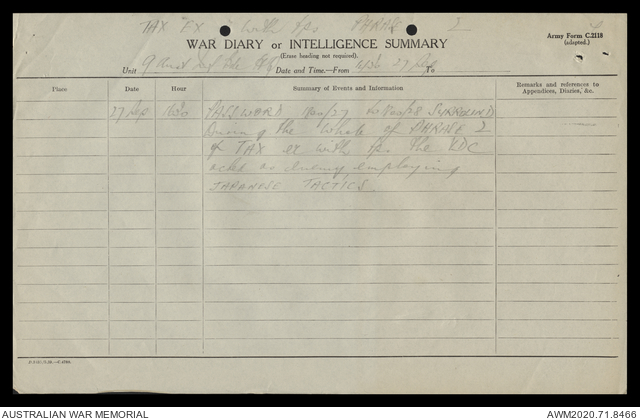 TAX "EX" with tps PHASE 2
Army Form C.2118
(adapted.)
WAR DIARY or INTELLIGENCE SUMMARY
(Erase heading not required).
Unit 9 Aust Inf Bde HQ Date and Time.—From 27 Sep To
Place Date Hour Summary of Events and Information Remarks and references to Appendices, Diaries, &c.
27 Sep PASSWORD SURREND
During the whole of PHASE 2
of TAX ex with tps the VDC
acted as enemy employing
JAPANESE TACTICS.
AUSTRALIAN WAR MEMORIAL
AWM2020.71.8466